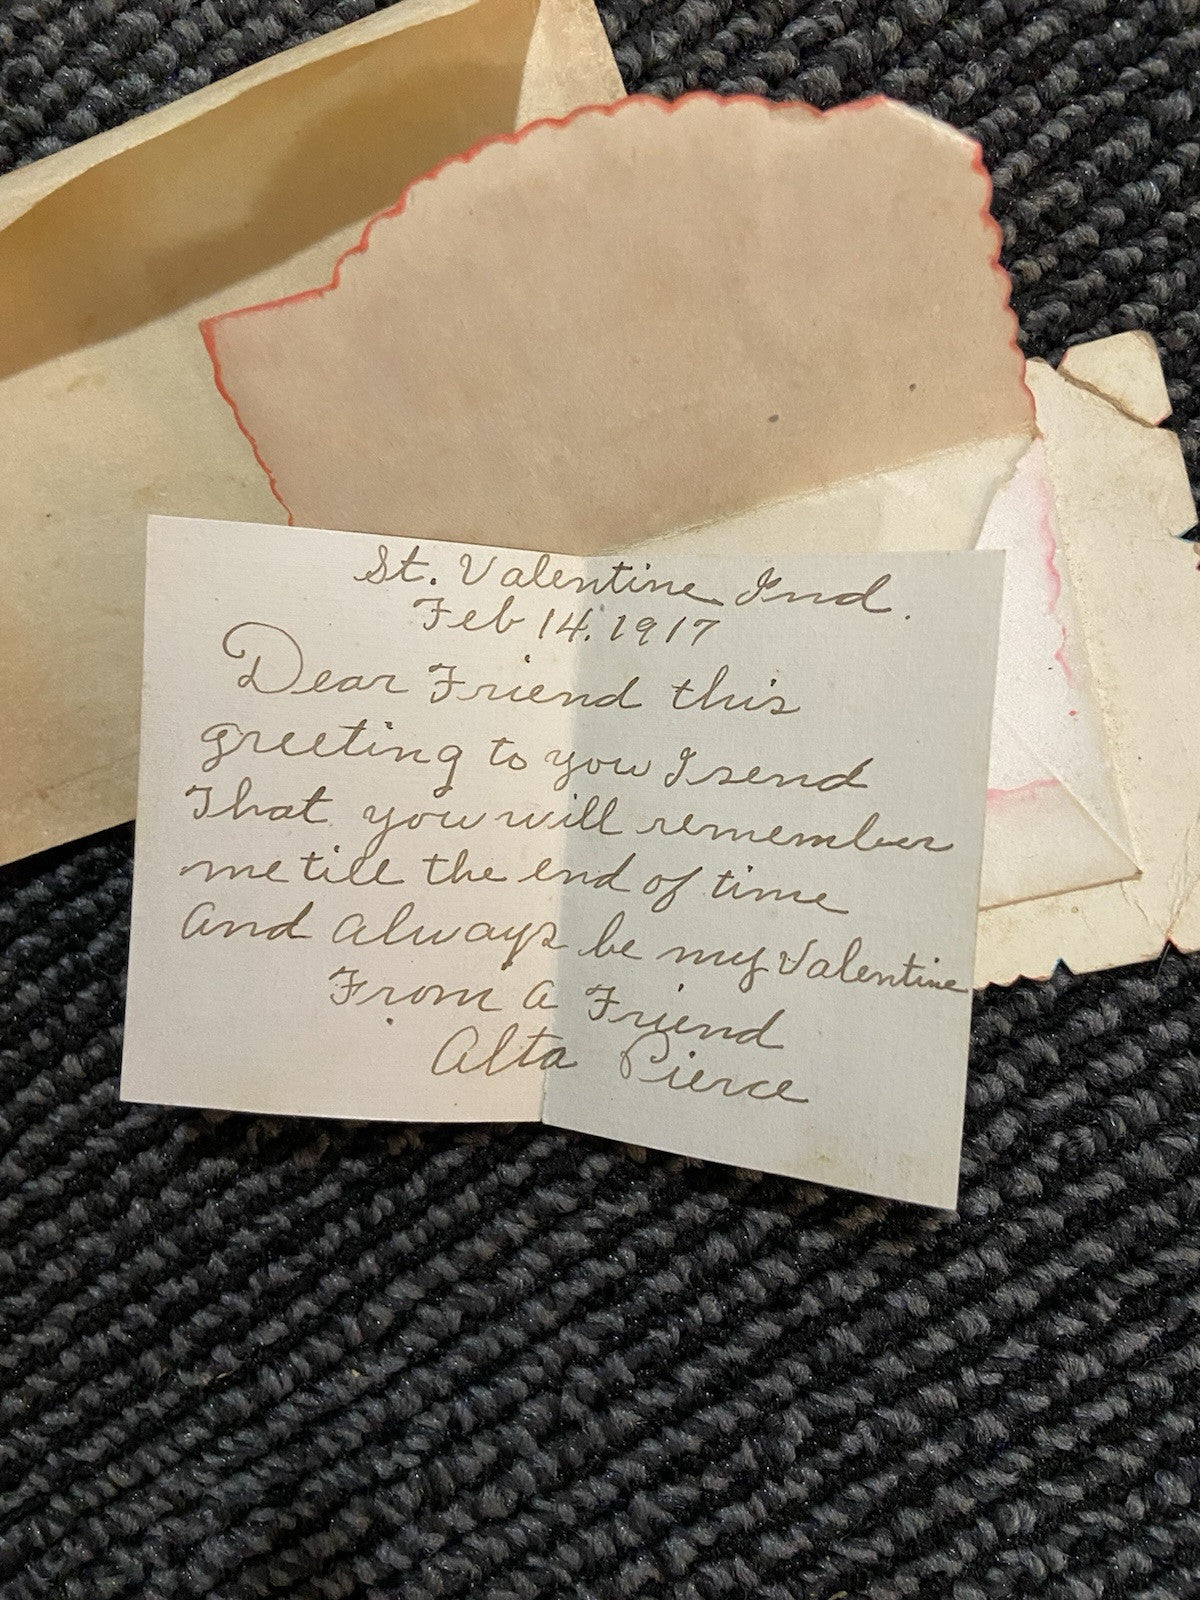 St. Valentine Ind.
Feb 14. 1917
Dear Friend this
greeting to you I send
That you will remember
me till the end of time
And always be my Valentine
From A Friend
Alta Pierce